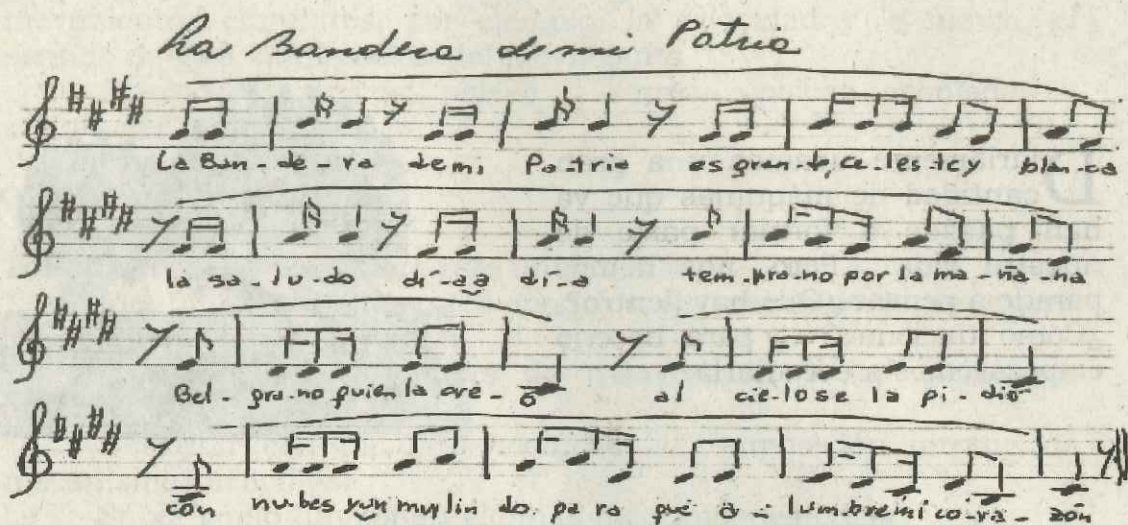 La Bandera de mi Patria
La Ban - de - ra demi Pa - tria es gran - de, ce - les - tey blan - ca
la sa - lu - do dí - aa dí - a tem - prano por la ma - ña - na
Bel - gra - no quien la cre - ó al cie - lo se la pi - dió
con nu - bes yun muy lin do pa ra que a - lum - bre mi co - ra - zón